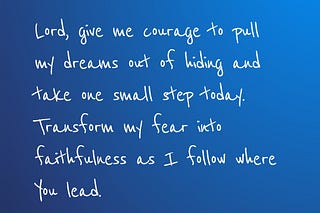 Lord, give me courage to pull
my dreams out of hiding and
take one small step today.
Transform my fear into
faithfulness as I follow where
You lead.